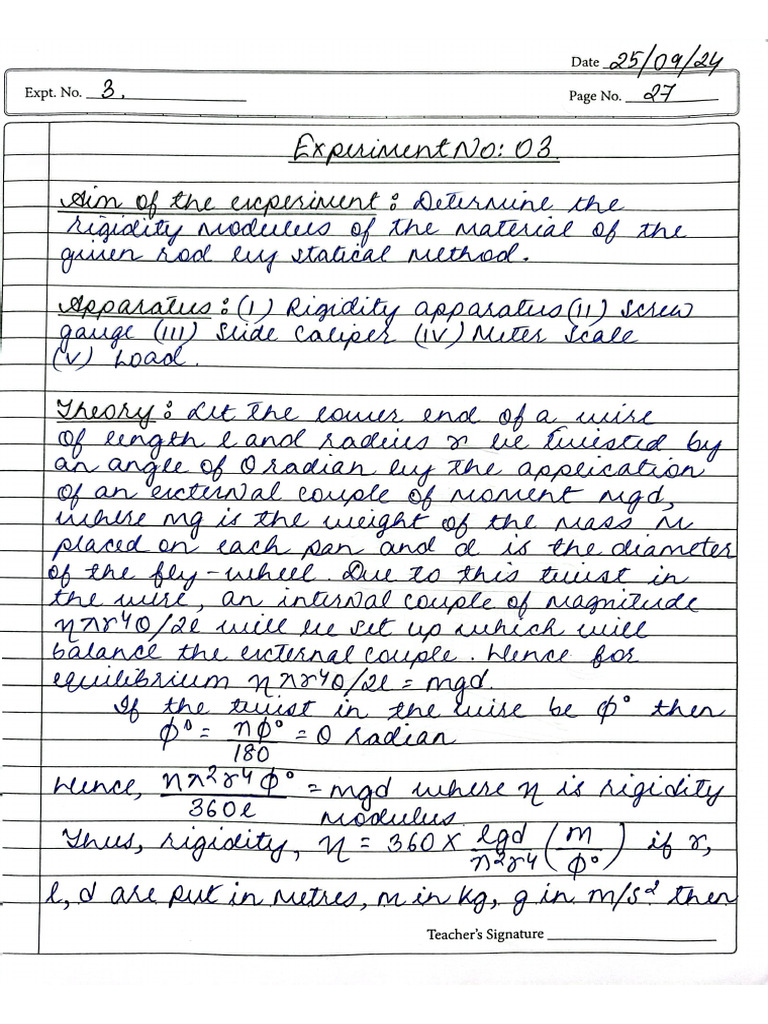 Date 25/09/24
Expt. No. 3.
Page No. 27
Experiment No: 03.
Aim of the experiment: Determine the
rigidity modulus of the material of the
given rod by statical method.
Apparatus: (I) Rigidity apparatus (II) Screw
gauge (III) Slide Caliper (IV) Meter Scale
(V) Load.
Theory: Let the lower end of a wire
of length l and radius r be twisted by
an angle of θ radian by the application
of an external couple of moment mgd,
where mg is the weight of the mass M
placed on each pan and d is the diameter
of the fly-wheel. Due to this twist in
the wire, an internal couple of magnitude
ηπr⁴θ/2l will be set up which will
balance the external couple. Hence for
equilibrium ηπr⁴θ/2l = mgd.
If the twist in the wire be φ° then
φ° = πφ°/180 = θ radian
Hence, ηπ²r⁴φ°/360l = mgd where η is rigidity
modulus.
Thus, rigidity, η = 360 × lgd/π²r⁴ (m/φ°) if r,
l, d are put in metres, m in kg, g in m/s² then
Teacher's Signature